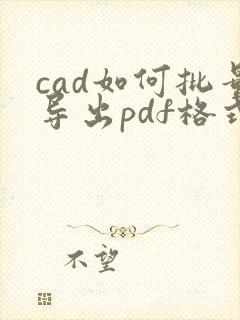 cad如何批量
导出pdf格式
不望